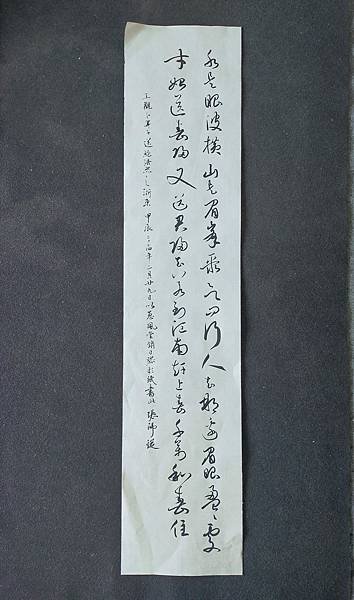 水是眼波橫山是眉峯聚欲問行人去那邊眉眼盈〻處
才始送春歸又送君歸去若到江南趕上春千萬和春住
王觀卜算子送鮑浩然之浙東 甲辰 年二月廿九日以蕙風堂